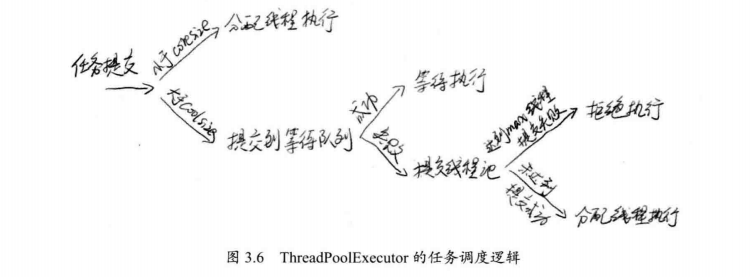 任务提交
小于coresize
分配线程执行
大于coresize
提交到等待队列
成功
等待执行
失败
提交线程池
达到max线程
提交失败
拒绝执行
未达到
提交成功
分配线程执行
图 3.6 ThreadPoolExecutor 的任务调度逻辑